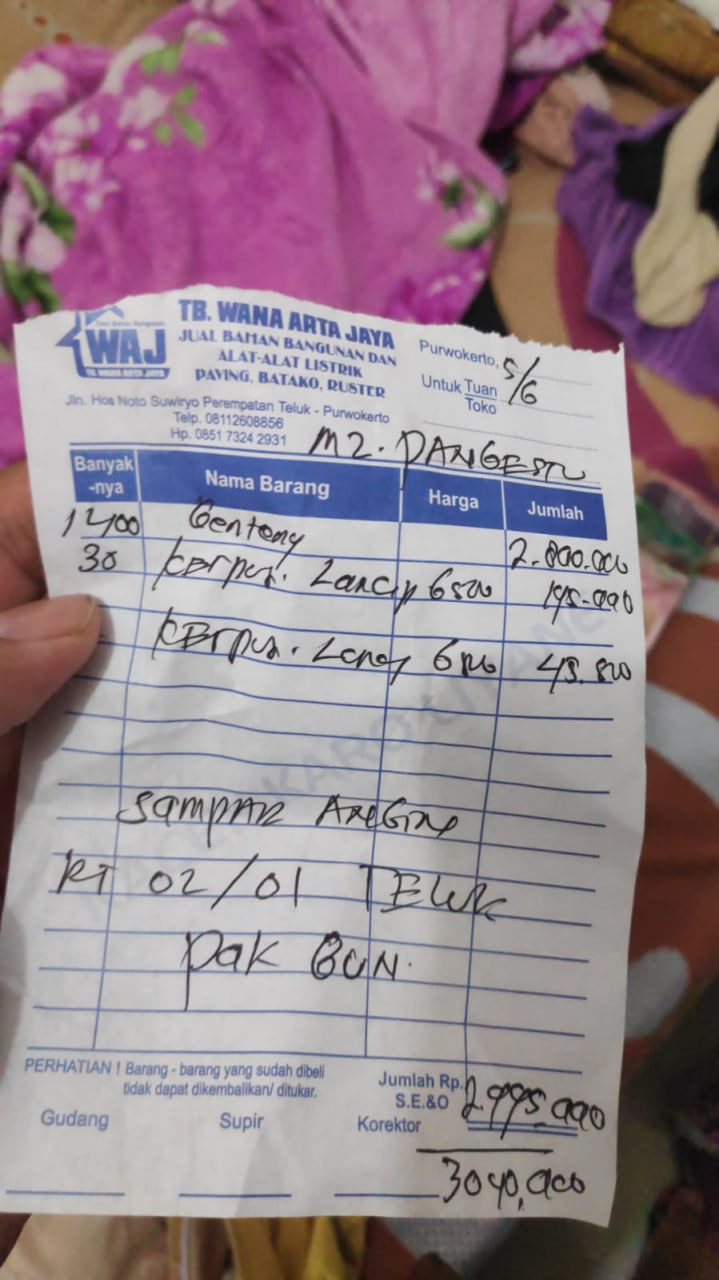 WAJ
TB. WANA ARTA JAYA
TB. WANA ARTA JAYA
JUAL BAHAN BANGUNAN DAN
ALAT-ALAT LISTRIK
PAVING, BATAKO, RUSTER
Jln. Hos Noto Suwiryo Perempatan Teluk - Purwokerto
Telp. 08112608856
Hp. 0851 7324 2931
Purwokerto, 5/6
Untuk Tuan
Toko
PANGESTU
Banyak-nya Nama Barang Harga Jumlah
1400 Genteng 2.800.000
30 Kerpus. Lancip 6500 195.000
Kerpus. Lancip
RT 02/01 TELUK
Pak
PERHATIAN ! Barang - barang yang sudah dibeli
tidak dapat dikembalikan/ ditukar.
Jumlah Rp. 2.995.000
S.E.&O
Gudang Supir Korektor
3040,000